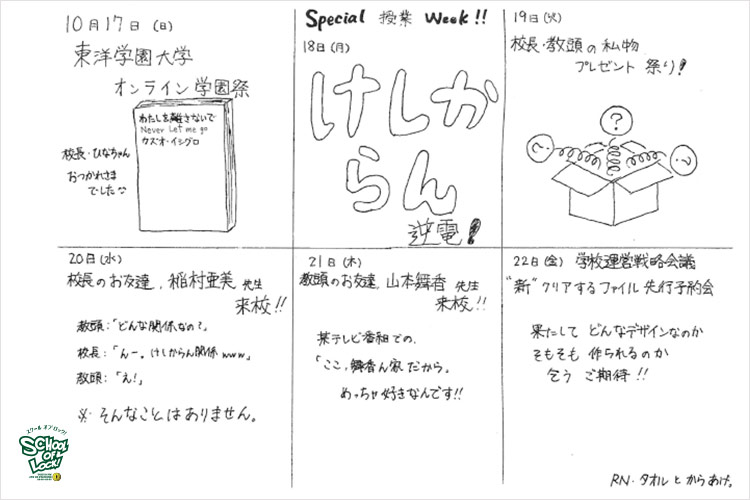 10月17日(日)
東洋学園大学
オンライン学園祭
わたしを離さないで
Never Let me go
カズオ・イシグロ
校長・ひなちゃん
おつかれさま
でした
Special 授業 Week!!
18日(月)
けしか
らん
逆電!
19日(火)
校長・教頭の私物
プレゼント祭り!
?
?
?
20日(水)
校長のお友達、稲村亜美先生
来校!!
教頭:「どんな関係なの?」
校長:「んー。けしからん関係www」
教頭:「え!」
※そんなことはありません。
21日(木)
教頭のお友達、山本舞香先生
来校!!
某テレビ番組での、
「ここ、舞香ん家だから。
めっちゃ好きなんです!!
22日(金) 学校運営戦略会議
"新"クリアするファイル先行予約会
果たしてどんなデザインなのか
そもそも作られるのか
乞うご期待!!
RN・タオルとからあげ。
スクールオブロック!
SCHOOL
OF
LOCK!